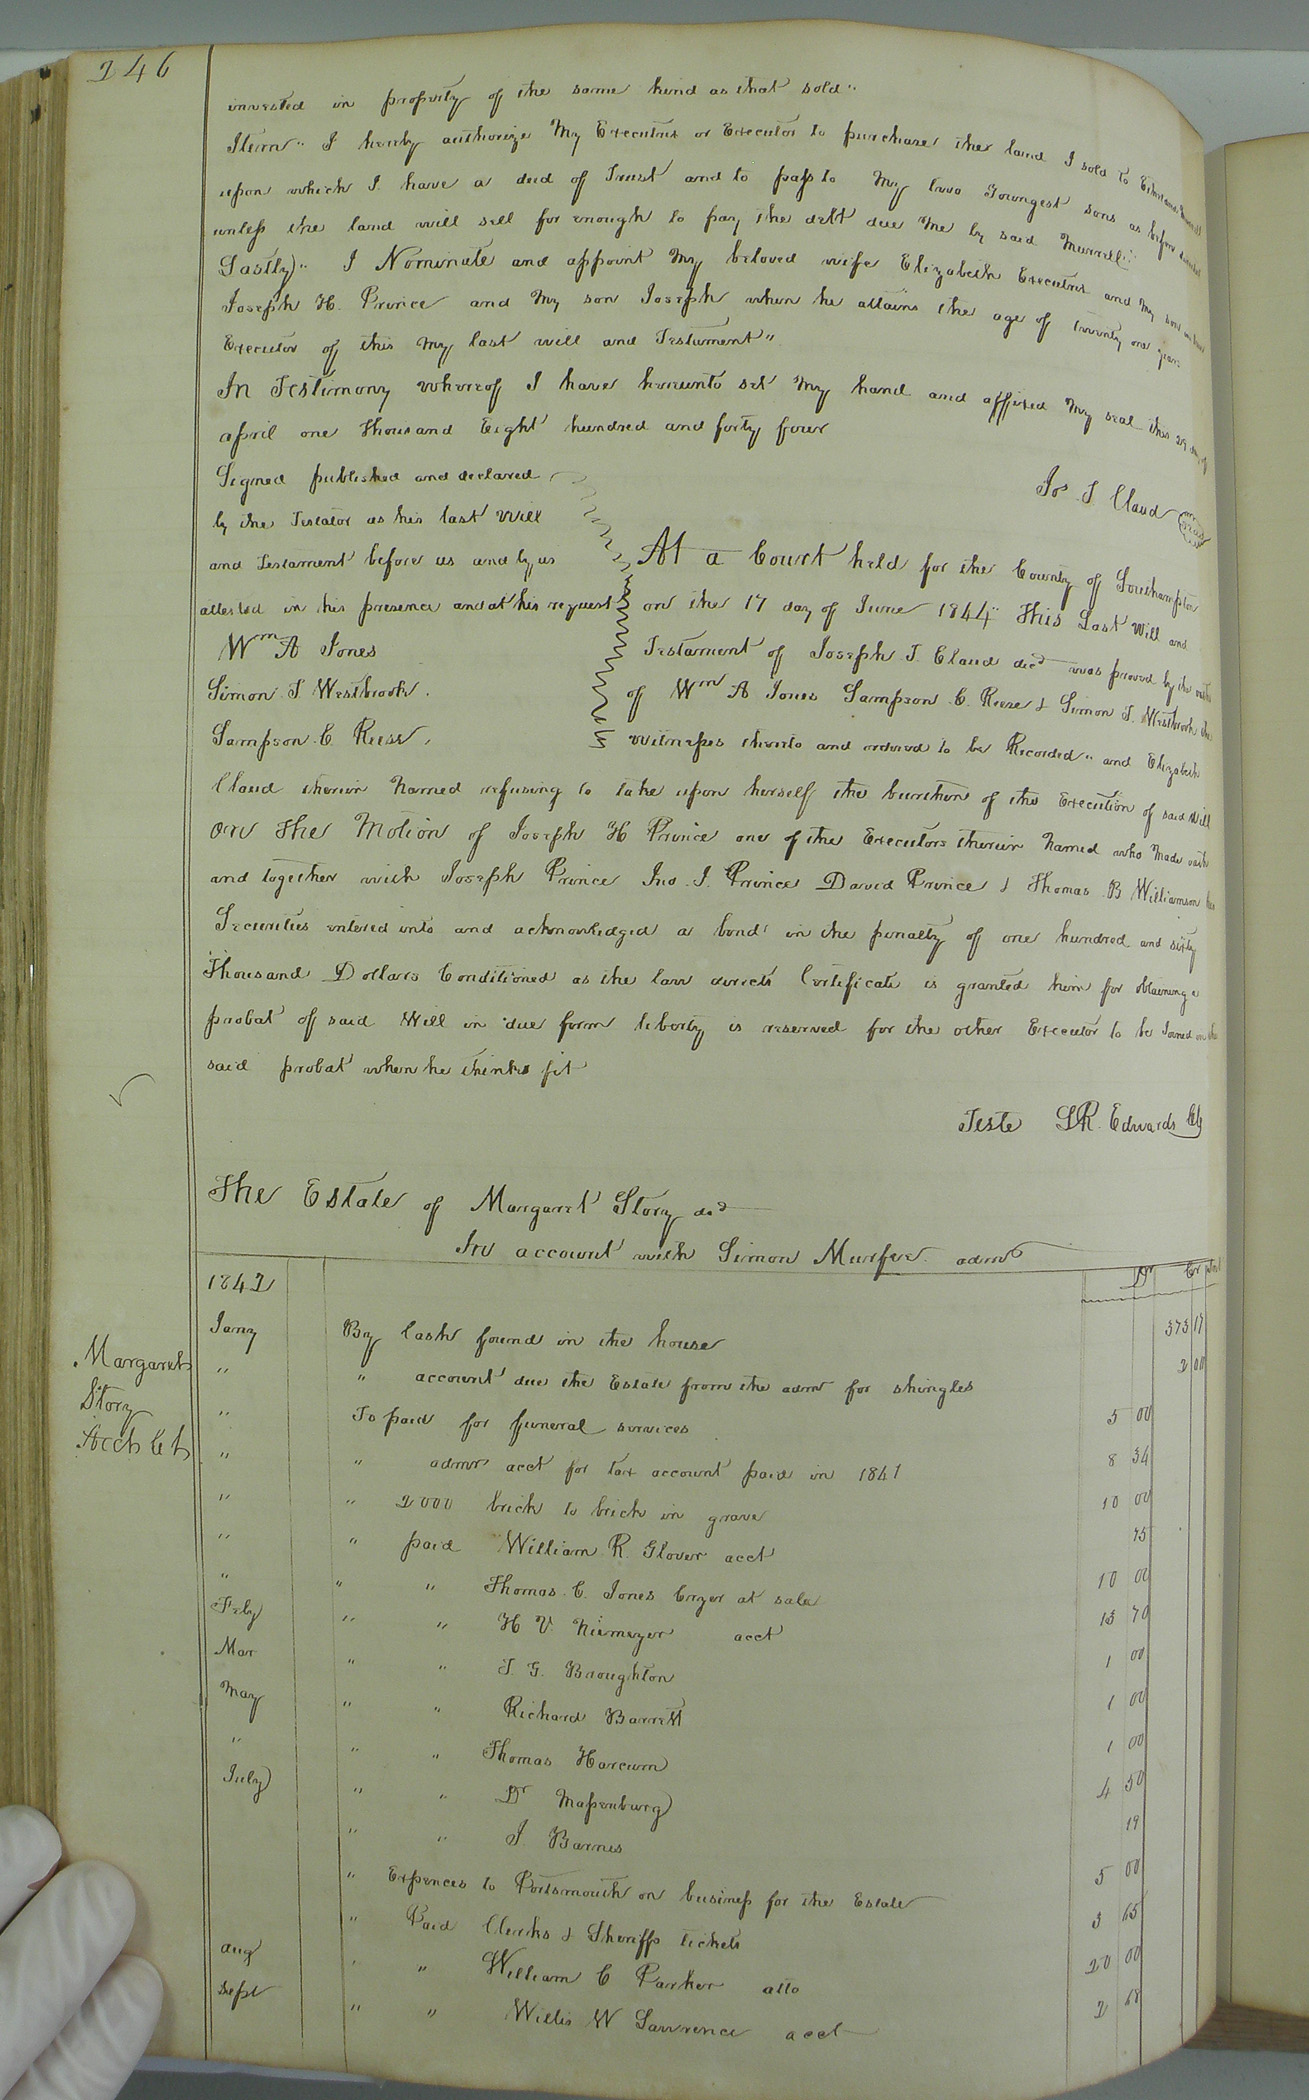 246
invested in property of the same kind as that sold"
Item" I hereby authorize My Executrix or Executor to purchase the land I sold to
upon which I have a deed of Trust and to pass to My two Youngest sons as before directed
unless the land will sell for enough to pay the debt due Me by said Murrell"
Lastly" I Nominate and appoint My beloved wife Elizabeth Executrix and My son in law
Joseph H. Prince and My son Joseph when he attains the age of twenty one years
Executor of this My last will and Testament"
In Testimony whereof I have hereunto set My hand and affixed My seal this 29 day of
april one Thousand Eight hundred and forty four
Jos T. Claud seal
Signed published and declared
by the Testator as his last Will
and Testament before us and by us
attested in his presence and at his request
Wm A Jones
Simon T Westbrook.
Sampson C. Reese.
At a Court held for the County of Southampton
on the 17 day of June 1844" This Last Will and
Testament of Joseph T. Claud decd was proved by the oaths
of Wm A Jones Sampson C. Reese & Simon T. Westbrook the
witnesses thereto and ordered to be Recorded" and Elizabeth
Claud therein Named refusing to take upon herself the burthen of the Execution of said Will
On The Motion of Joseph H Prince one of the Executors therein Named who Made oath
and together with Joseph Prince Jno. J. Prince David Prince & Thomas B Williamson his
Securities entered into and acknowledged a bond in the penalty of one hundred and sixty
Thousand Dollars Conditioned as the law directs Certificate is granted him for obtaining a
probat of said Will in due form liberty is reserved for the other Executor to be Joined in the
said probat when he thinks fit
Teste L.R. Edwards Clk
The Estate of Margaret Story decd
In account with Simon Murfee admr
Margarets
Story
Acct Ct
1842 Dr Cr
Jany By Cash found in the house 373 17
" " account due the Estate from the admr for shingles 2 00
" To paid for funeral services 5 00
" " admrs acct for tax account paid in 1841 8 34
" " 2000 brick to brick in grave 10 00
" " paid William R. Glover acct 75
" " " Thomas C. Jones Cryer at sale 10 00
Feby " " H V. Niemeyer acct 13 70
Mar " " T. G. Broughton 1 00
May " " Richard Barrett 1 00
" " " Thomas Harcum 1 00
July " " Dr Massenburg 4 50
" " J. Barnes 19
" Expences to Portsmouth on business for the Estate 5 00
" Paid Clerks & Sheriffs tickets 3 65
aug " " William C Parker atto 20 00
Sept " " Willis W Lawrence acct 2 68